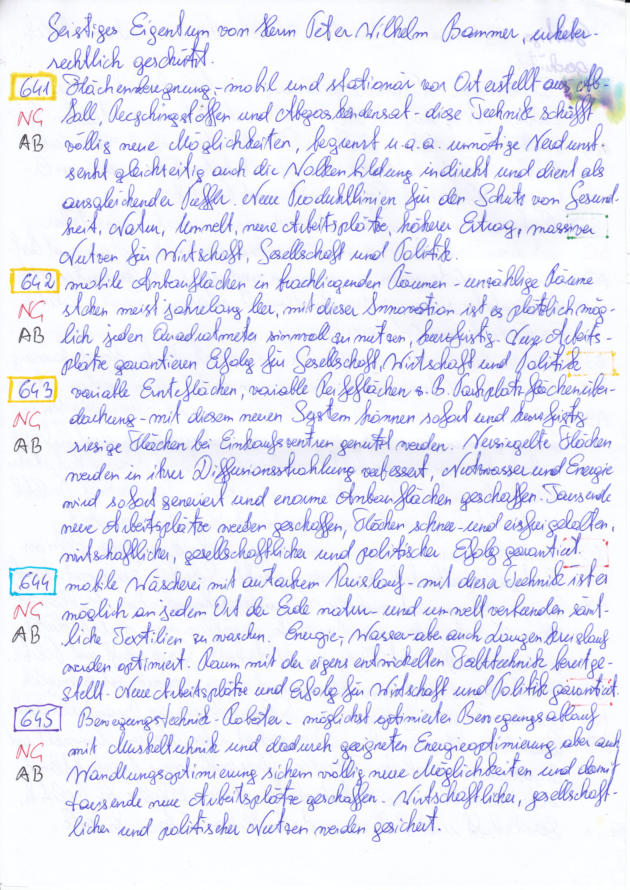 Geistiges Eigentum von Herrn Peter Wilhelm Bammer, urheber-
rechtlich geschützt.
641 Flächenerzeugung - mobil und stationär vor Ort erstellt aus Ab-
NG fall, Recyclingstoffen und Abgaskondensat - diese Technik schafft
AB völlig neue Möglichkeiten, begrenzt u.a.a. unnötige Verdunst.
senkt gleichzeitig auch die Wolkenbildung indirekt und dient als
ausgleichender Puffer. Neue Produktlinien für den Schutz von Gesund-
heit, Natur, Umwelt, neue Arbeitsplätze, höherer Ertrag, massiver
Nutzen für Wirtschaft, Gesellschaft und Politik.
642 mobile Anbauflächen in brachliegenden Räumen - unzählige Räume
NG stehen meist jahrelang leer, mit dieser Innovation ist es plötzlich mög-
AB lich jeden Quadratmeter sinnvoll zu nutzen, kurzfristig. Neue Arbeits-
plätze garantieren Erfolg für Gesellschaft, Wirtschaft und Politik
643 variable Ernteflächen, variable Reifeflächen z. B. Parkplatzflächenüber-
NG dachung - mit diesem neuen System können sofort und kurzfristig
AB riesige Flächen bei Einkaufszentren genutzt werden. Versiegelte Flächen
werden in ihrer Diffusionsstrahlung verbessert, Nutzwasser und Energie
wird sofort generiert und enorme Anbauflächen geschaffen. Tausende
neue Arbeitsplätze werden geschaffen, Flächen schnee- und eisfrei gehalten,
wirtschaftlicher, gesellschaftlicher und politischer Erfolg garantiert.
644 mobile Wäscherei mit autarkem Kreislauf - mit dieser Technik ist es
NG möglich an jedem Ort der Erde natur- und umweltverbunden sämt-
AB liche Textilien zu waschen. Energie-, Wasser- aber auch Laugenkreislauf
werden optimiert. Raum mit der eigens entwickelten Falttechnik bereitge-
stellt. Neue Arbeitsplätze und Erfolg für Wirtschaft und Politik garantiert.
645 Bewegungstechnik-Roboter - möglichst optimierter Bewegungsablauf
NG mit Muskeltechnik und dadurch geeigneten Energieoptimierung aber auch
AB Wandlungsoptimierung sichern völlig neue Möglichkeiten und damit
tausende neue Arbeitsplätze geschaffen. Wirtschaftlicher, gesellschaft-
licher und politischer Nutzen werden gesichert.